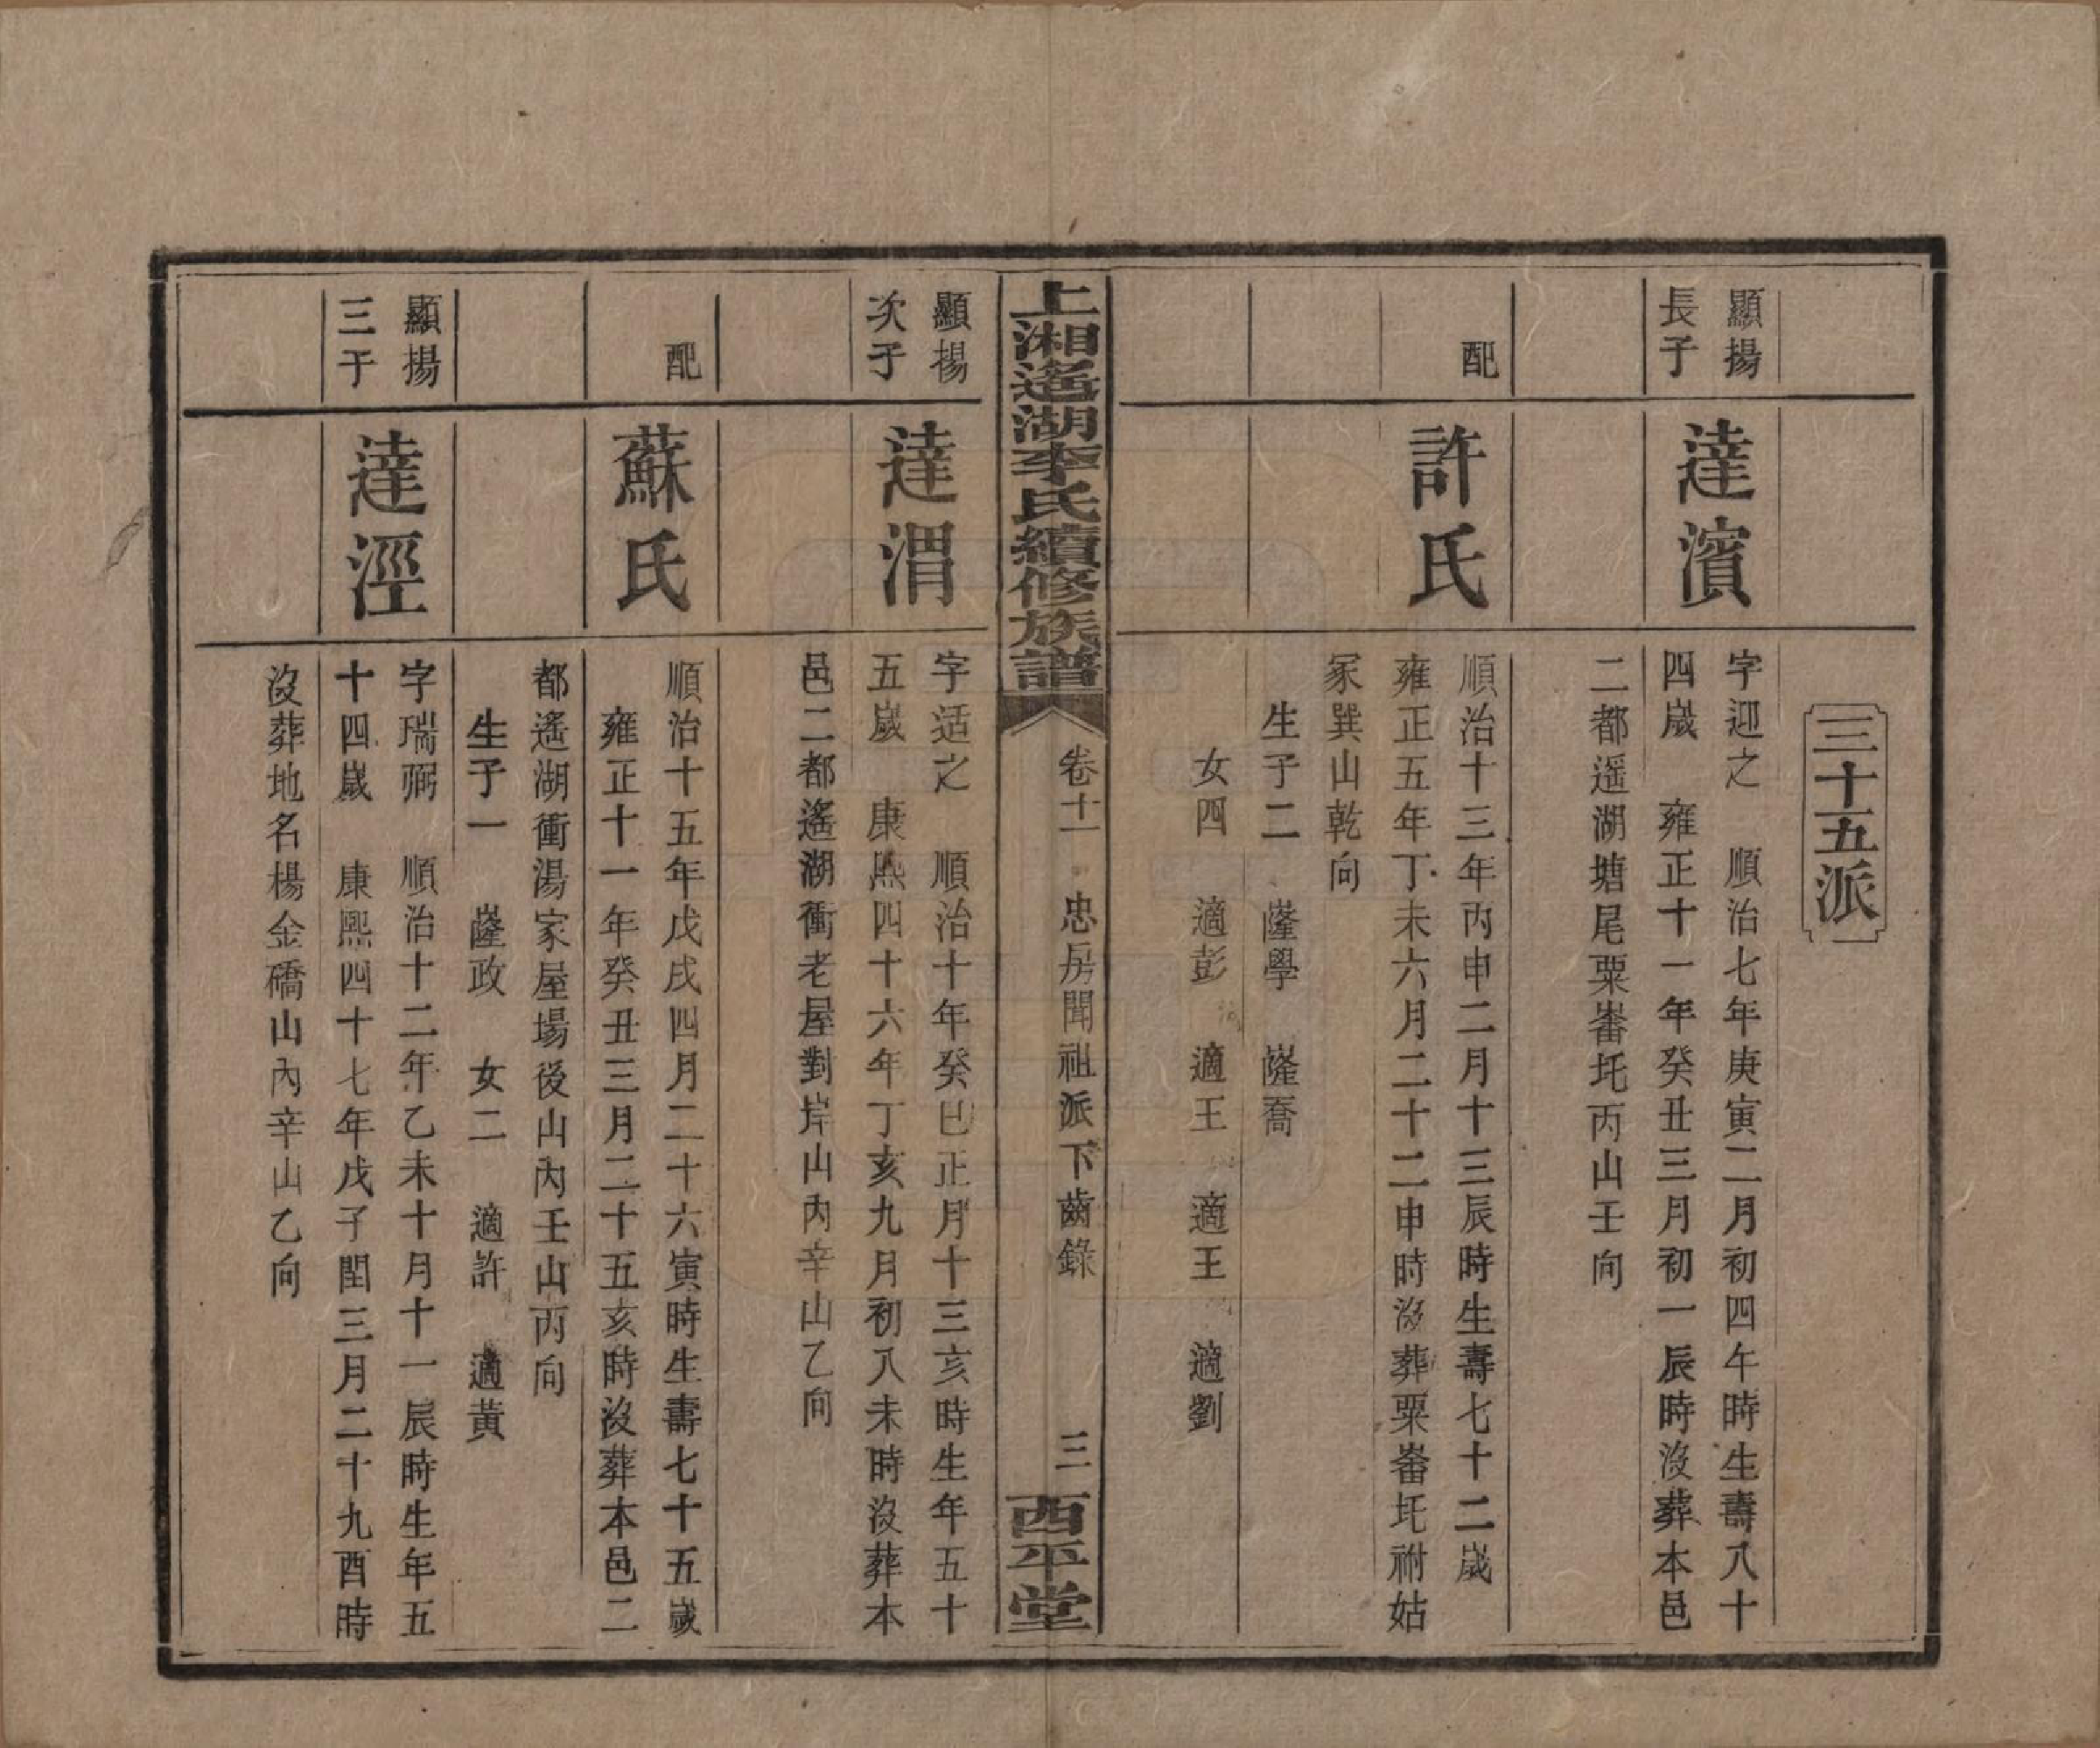 三十五派
顯揚
長子
達濱
字迎之 順治七年庚寅二月初四午時生壽八十
四歲 雍正十一年癸丑三月初一辰時沒葬本邑
二都遥湖塘尾粟崙圫丙山壬向
配
許氏
順治十三年丙申二月十三辰時生壽七十二歲
雍正五年丁未六月二十二申時沒葬粟崙圫祔姑
冢巽山乾向
生子二 薩學 薩喬
女四 適彭 適王 適王 適劉
上湘遙湖李氏續修族譜
卷十一 忠房聞祖派下齒錄
三
西平堂
顯揚
次子
達渭
字适之 順治十年癸巳正月十三亥時生年五十
五歲 康熙四十六年丁亥九月初八未時沒葬本
邑二都遙湖衝老屋對岸山內辛山乙向
配
蘇氏
順治十五年戊戌四月二十六寅時生壽七十五歲
雍正十一年癸丑三月二十五亥時沒葬本邑二
都遙湖衝湯家屋場後山內壬山丙向
生子一 薩政 女二 適許 適黃
顯揚
三子
達涇
字瑞弼 順治十二年乙未十月十一辰時生年五
十四歲 康熙四十七年戊子閏三月二十九酉時
沒葬地名楊金礄山內辛山乙向